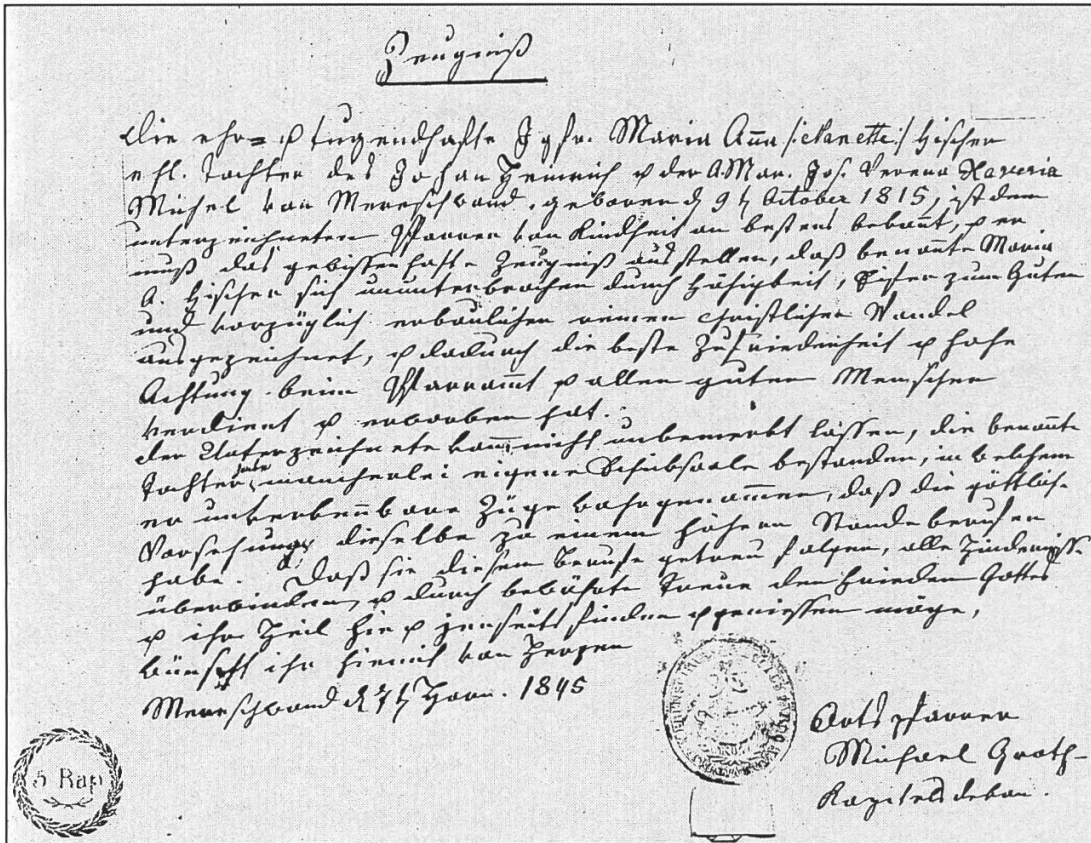 Zeugniß
Die ehr= u tugendhafte Jgfr. Maria Aña /: Nanette :/ Fischer
ehl. Tochter des Johan Heinrich u der A. Mar. Jos. Verena Xaveria
Michel von Merenschwand, geboren d 9t October 1815, ist dem
unterzeichneten Pfarrer von Kindheit an bestens bekañt, u er
muß das gewissenhafte Zeugniß ausstellen, daß benañte Maria
A. Fischer sich ununterbrochen durch Fähigkeit, Eifer zum Guten
und vorzüglich erbaulichen reinen christlichen Wandel
ausgezeichnet, u dadurch die beste Zufriedenheit u hohe
Achtung beim Pfarramt u allen guten Menschen
verdient u erworben hat.
Der Unterzeichnete kañ nicht unbemerkt lassen, die benañte
Tochter habe mancherlei eigene Schiksaale bestanden, in welchem
er unverkeñbare Züge wahrgenom̄en, daß die göttliche
Vorsehung dieselbe zu einem höhern Stande berufen
habe. Daß sie diesem Berufe getreu folgen, alle Hindernisse
überwinden, u durch bewährte Treue den Frieden Gottes
u ihr Heil hie u jenseits finden u geniessen möge,
wünscht ihr hiemit von Herzen
Merenschwand d 7t Horn. 1845
Ortspfarrer
Michael Groth
Kapitelsdekan.
5 Rap